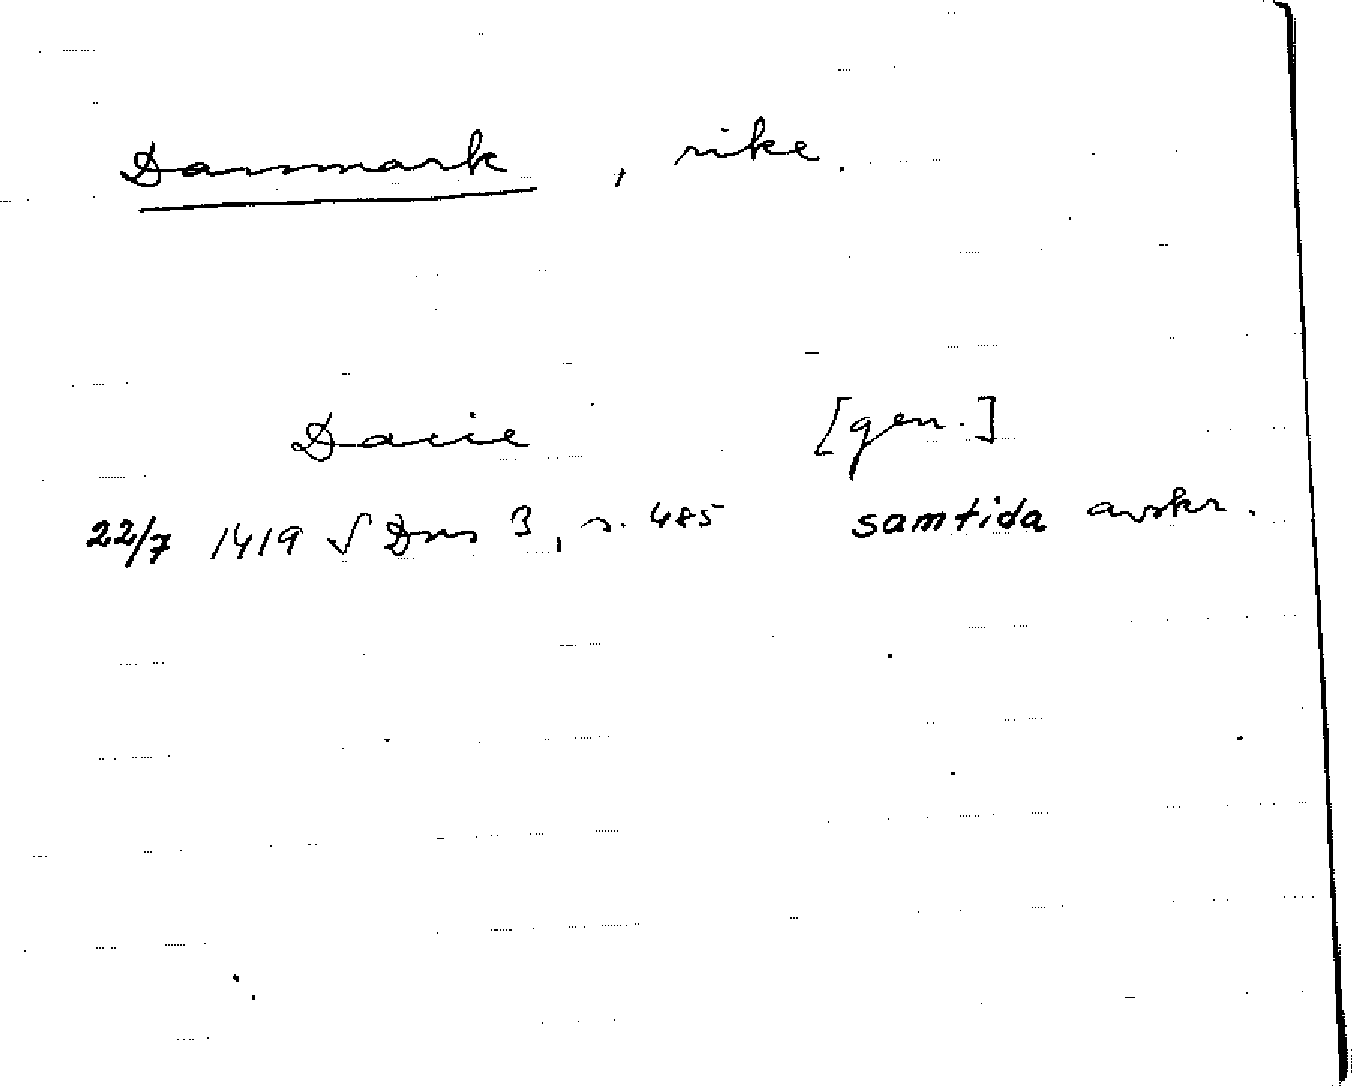 Danmark, rike.
Dacie [gen.]
22/7 1419 √ Dns 3, s. 485 samtida avskr.